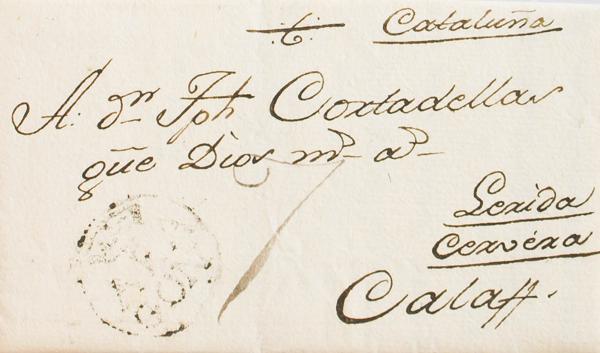 Cataluña
A: dn Jph Cortadellas
gue Dios ms as
Lerida
Cervéra
Calaff.
7